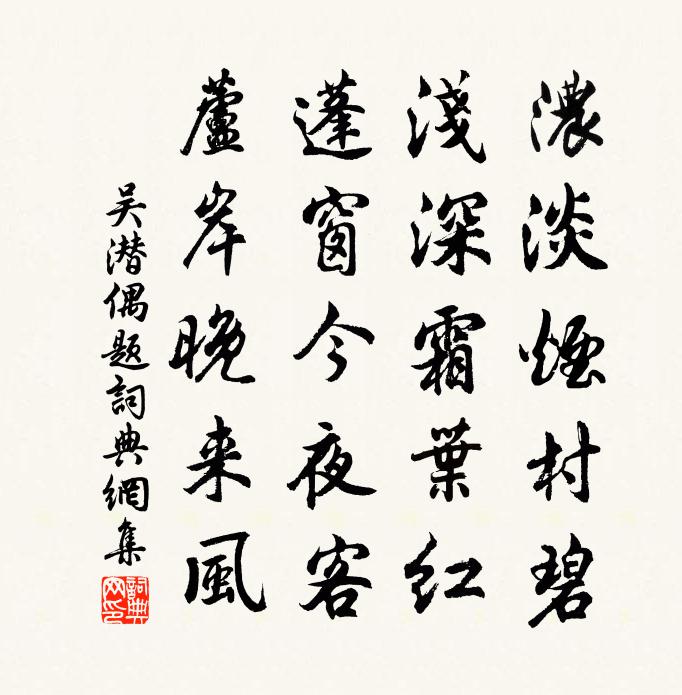 濃淡煙村碧
淺深霜葉紅
蓬窗今夜客
蘆岸晚来風
吴潛偶題詞典網集
詞典網印